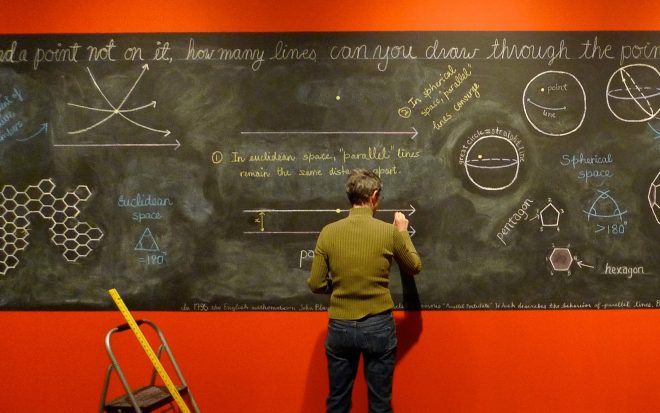 a point not on it, how many lines can you draw through the poin
② In spherical
space, "parallel"
lines converge
point
line
① In euclidean space, "parallel" lines
remain the same distance apart.
great circle = straight line
Spherical
space
>180°
Euclidean
space
=180°
pentagon
hexagon
pa
In 1795 the English mathematician John Play "Parallel Postulate" which describes the behavior of parallel lines.